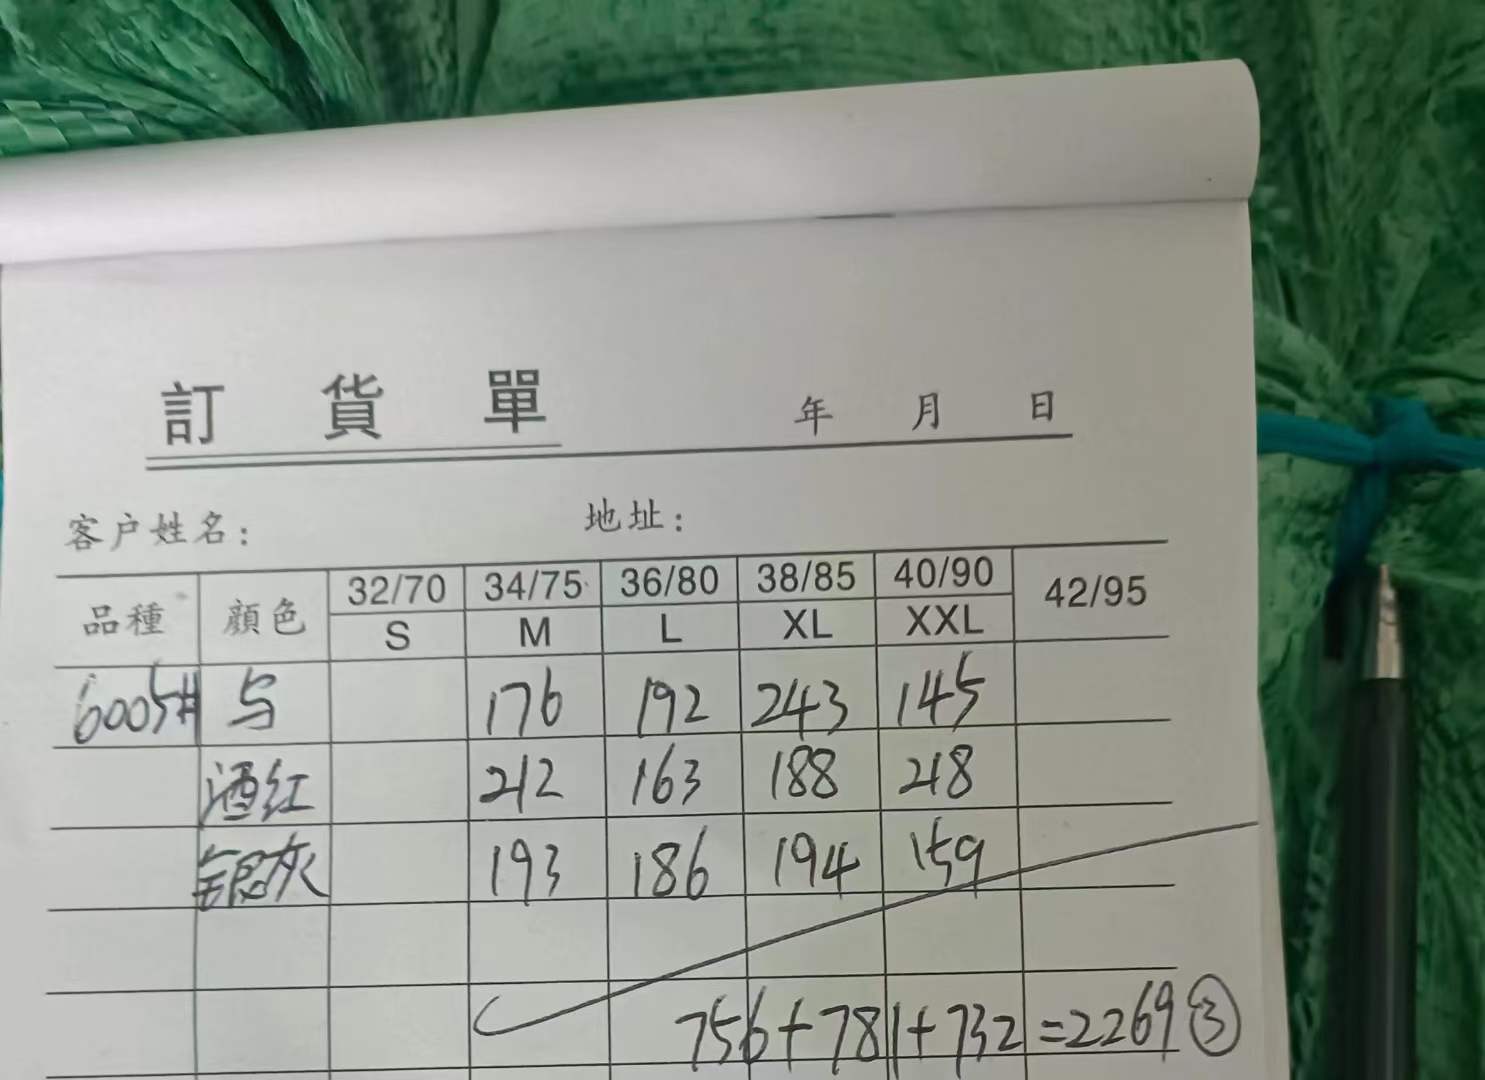 訂貨單 年 月 日
客户姓名： 地址：
品種 顔色 32/70 34/75 36/80 38/85 40/90 42/95
S M L XL XXL
6005# 与 176 192 243 145
酒红 212 163 188 218
银灰 193 186 194 159
756+781+732=2269③